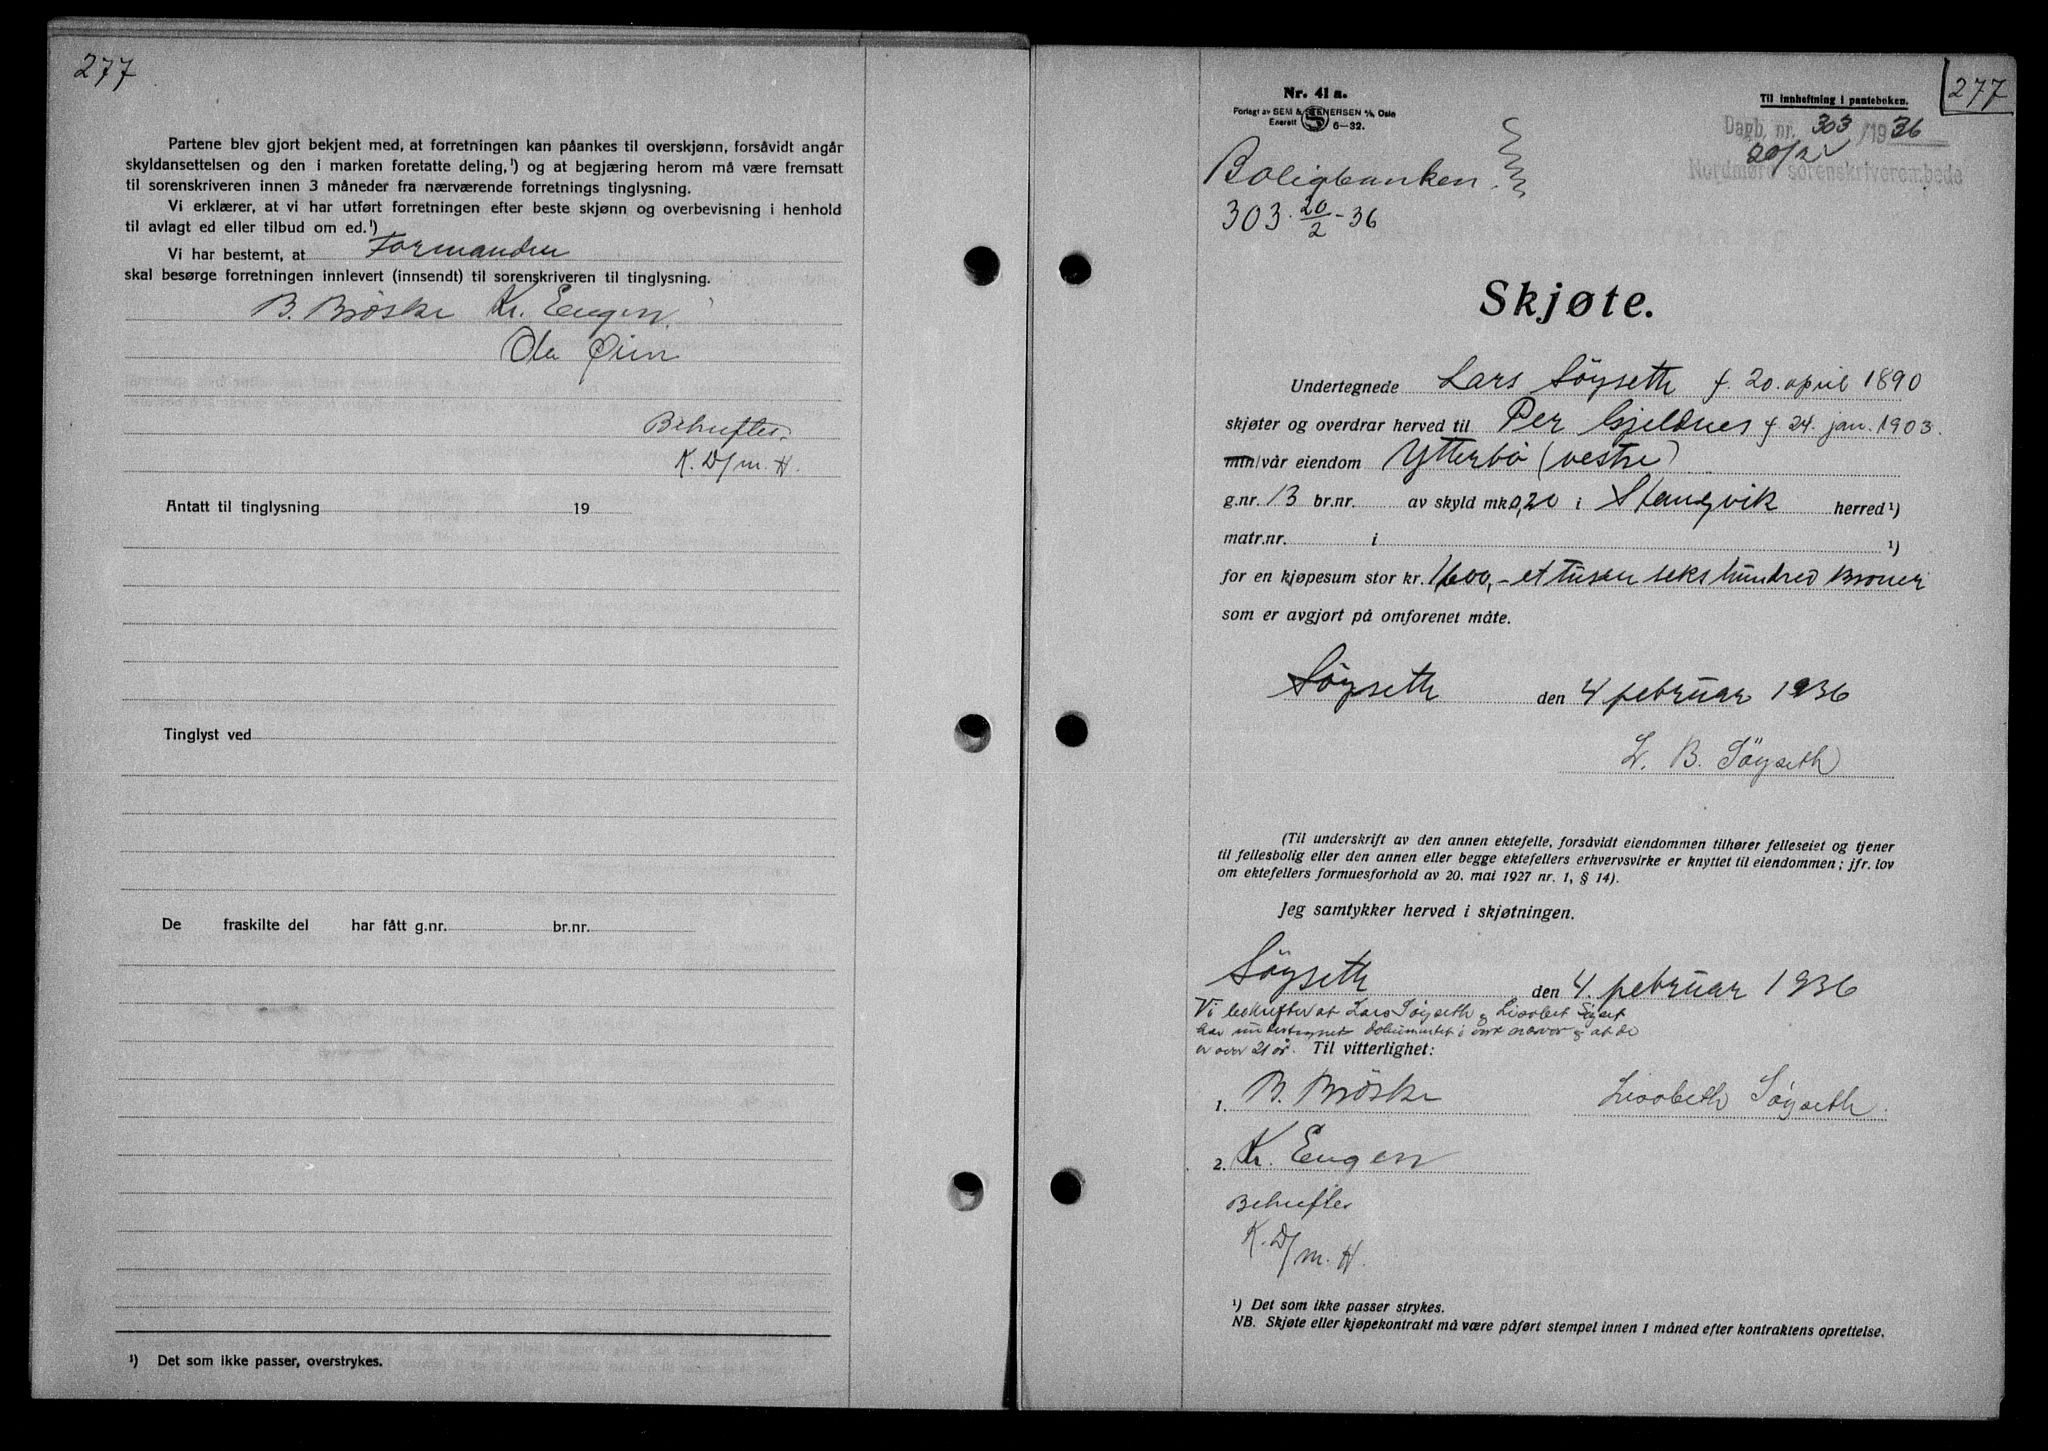 277
Partene blev gjort bekjent med, at forretningen kan påankes til overskjønn, forsåvidt angår
skyldansettelsen og den i marken foretatte deling,¹) og at begjæring herom må være fremsatt
til sorenskriveren innen 3 måneder fra nærværende forretnings tinglysning.
Vi erklærer, at vi har utført forretningen efter beste skjønn og overbevisning i henhold
til avlagt ed eller tilbud om ed.¹)
Vi har bestemt, at Formanden
skal besørge forretningen innlevert (innsendt) til sorenskriveren til tinglysning.
B. Bröske Kr. Engen
Ola Øien
Bekreftes
K. D/m. H.
Antatt til tinglysning 19
Tinglyst ved
De fraskilte del har fått g.nr. br.nr.
¹) Det som ikke passer, overstrykes.
277
Nr. 41 a.
Forlagt av SEM & STENERSEN A/S, Oslo
Enerett 6-32.
Til innheftning i panteboken.
Dagb. nr. 303/1936
20/2
Nordmøre sorenskriverembede
Boligbanken
303. 20/2-36
Skjøte.
Undertegnede Lars Söyseth f. 20. april 1890
skjøter og overdrar herved til Per Gjeldnes f. 24. jan. 1903.
min/vår eiendom Ytterbö (vestre)
g.nr. 13 br.nr. av skyld mk 0,20 i Stangvik herred ¹)
matr.nr. i ¹)
for en kjøpesum stor kr. 1600,- et tusen seks hundred kroner
som er avgjort på omforenet måte.
Söyseth den 4 februar 1936
L. B. Söyseth
(Til underskrift av den annen ektefelle, forsåvidt eiendommen tilhører felleseiet og tjener
til fellesbolig eller den annen eller begge ektefellers erhvervsvirke er knyttet til eiendommen; jfr. lov
om ektefellers formuesforhold av 20. mai 1927 nr. 1, § 14).
Jeg samtykker herved i skjøtningen.
Söyseth den 4. februar 1936
Vi bekrefter at Lars Söyseth og Lisabet Söyset
har undertegnet dokumentet i vort nærvær og at de
er over 21 år. Til vitterlighet:
1. B. Bröske Lisabeth Söyseth
2. Kr. Engen
Bekreftes
K. D/m. H.
¹) Det som ikke passer strykes.
NB. Skjøte eller kjøpekontrakt må være påført stempel innen 1 måned efter kontraktens oprettelse.